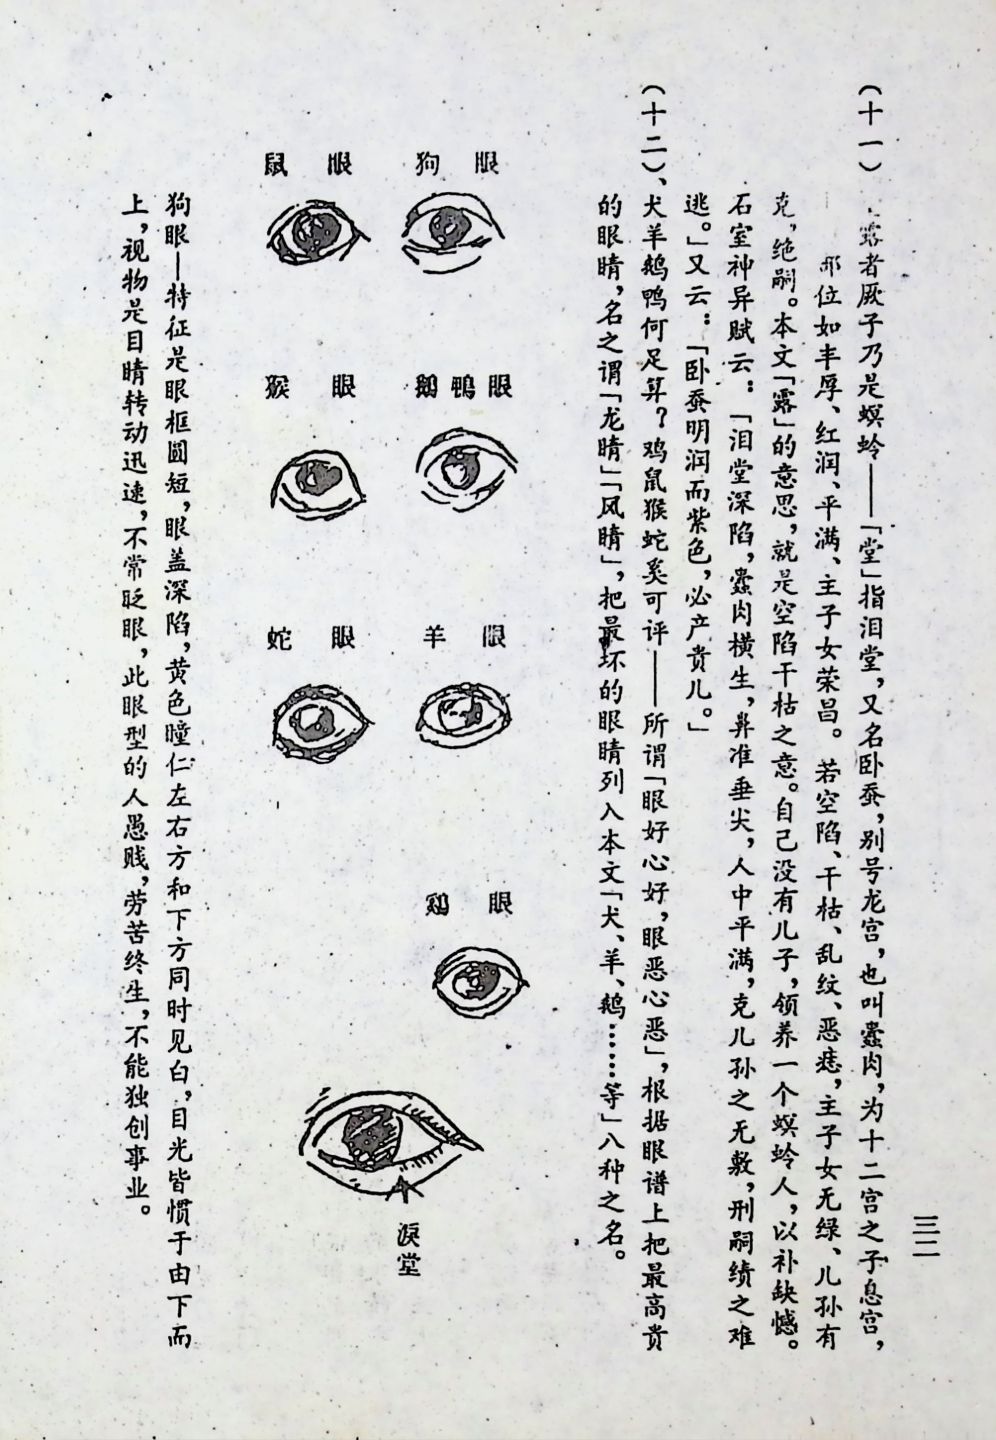 三二
(十一)露者厥子乃是螟蛉——「堂」指泪堂,又名卧蚕,别号龙宫,也叫蠹肉,为十二宫之子息宫,
部位如丰厚、红润、平满、主子女荣昌。若空陷、干枯、乱纹、恶痣,主子女无缘、儿孙有
克,绝嗣。本文「露」的意思,就是空陷干枯之意。自己没有儿子,领养一个螟蛉人,以补缺憾。
石室神异赋云:「泪堂深陷,蠹肉横生,鼻准垂尖,人中平满,克儿孙之无数,刑嗣续之难
逃。」又云:「卧蚕明润而紫色,必产贵儿。」
(十二)、犬羊鹅鸭何足算?鸡鼠猴蛇奚可评——所谓「眼好心好,眼恶心恶」,根据眼谱上把最高贵
的眼睛,名之谓「龙睛」「风睛」,把最坏的眼睛列入本文「犬、羊、鹅……等」八种之名。
狗眼
鵝鴨眼
羊眼
鷄眼
鼠眼
猴眼
蛇眼
淚堂
狗眼—特征是眼框圆短,眼盖深陷,黄色瞳仁左右方和下方同时见白,目光皆惯于由下而
上,视物是目睛转动迅速,不常眨眼,此眼型的人愚贱,劳苦终生,不能独创事业。